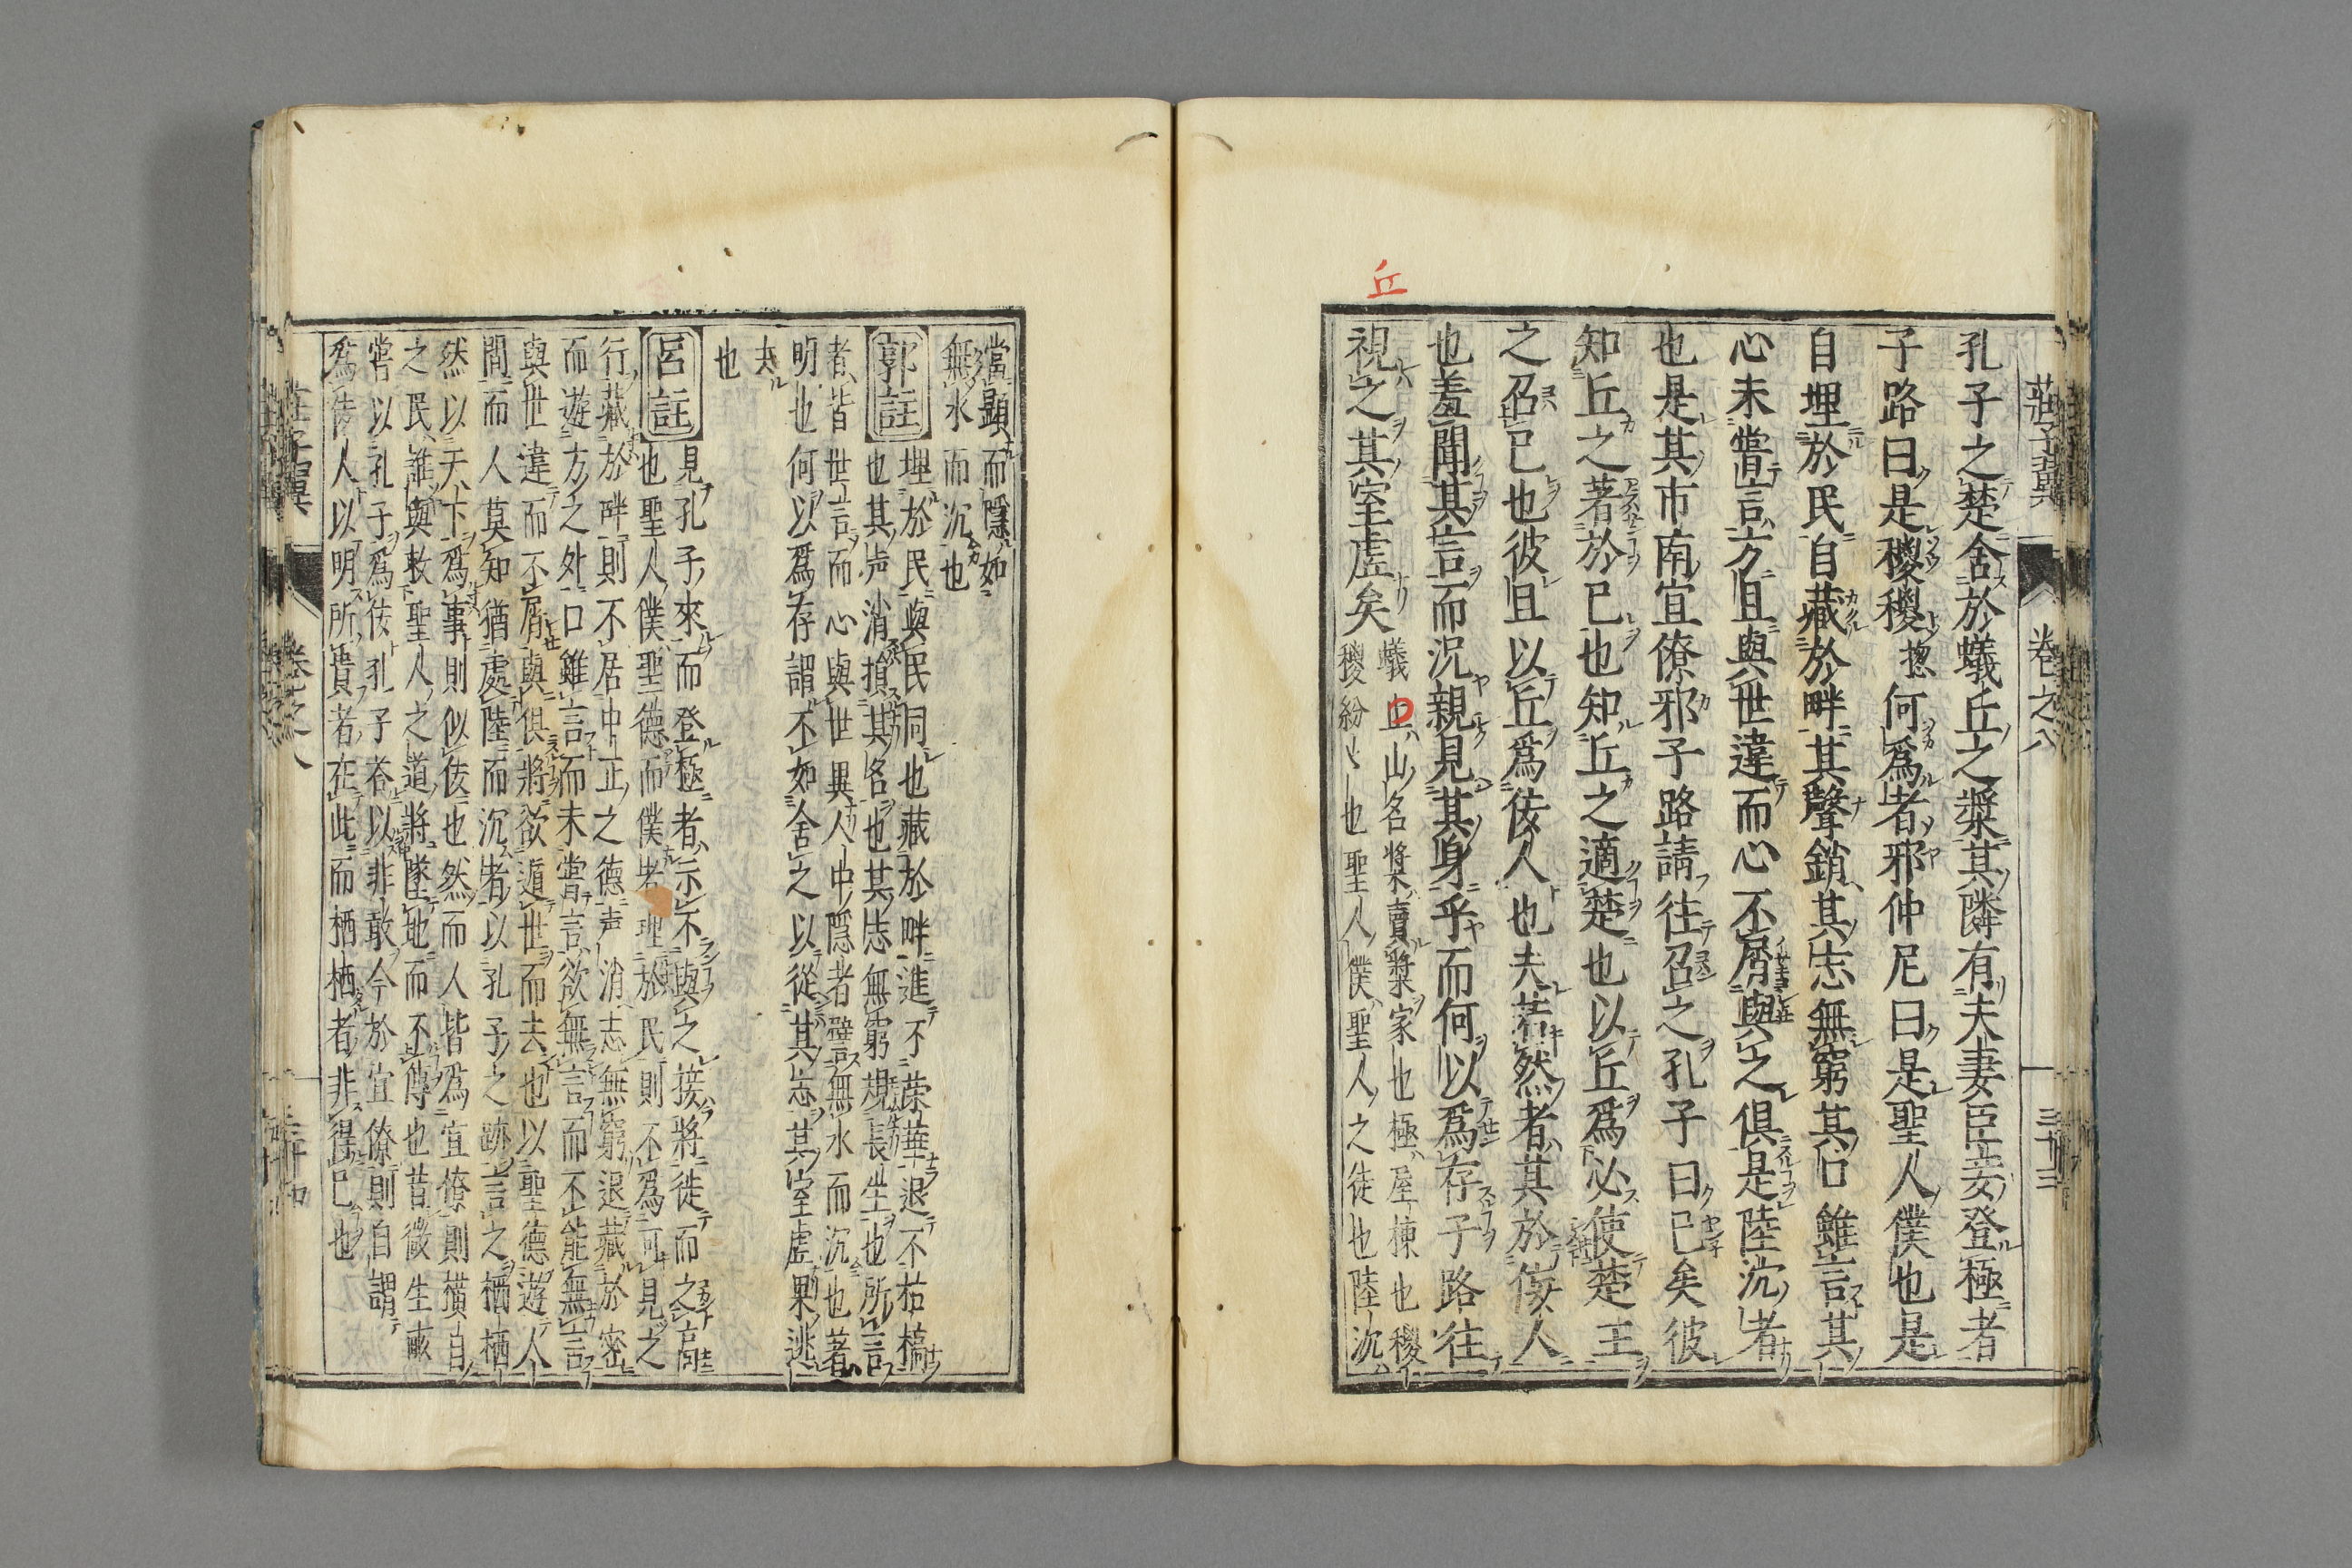 莊子翼
卷之八
三十三
孔子之楚舍於蟻丘之漿其隣有夫妻臣妾登極者
子路曰是稯稯揔何爲者邪仲尼曰是聖人僕也是
自埋於民自藏於畔其聲銷其志無窮其口雖言其
心未嘗言方且與世違而心不屑與之俱是陸沉者
也是其市南宜僚邪子路請往召之孔子曰已矣彼
知丘之著於已也知丘之適楚也以丘爲必使楚王
之召已也彼且以丘爲佞人也夫若然者其於佞人
也羞聞其言而況親見其身乎而何以爲存子路往
視之其室虛矣
丘
蟻丘山名漿賣漿家也極屋棟也稯
稯紛〻也聖人僕聖人之徒也陸沉
當顯而隱如
無水而沉也
郭註
埋於民與民同也藏於畔進不荣華退不枯槁
也其声消損其名也其志無窮規長生也所言
者皆世言而心與世異人中隱者譬無水而沉也著
明也何以爲存謂不如舍之以從其志其室虛果逃
去
也
呂註
見孔子來而登極者示不與之接將徙而之高
也聖人僕聖德而僕者埋於民則不爲可見之
行藏於畔則不居中正之德声消志無窮退藏於密
而遊方之外口雖言而未嘗言欲無言而不能無言
與世違而不屑與俱將欲遁世而去也以聖德遊人
間而人莫知猶處陸而沉者以孔子之跡言之栖栖
然以天下爲事則似佞也然而人皆爲宜僚則橫自
之民誰與敎聖人之道將墜地而不傳也昔微生畝
嘗以孔子爲佞孔子荅以非敢今於宜僚則自謂
爲佞人以明所貴者在此而栖栖者非得已也
莊子翼
卷之八
三十四